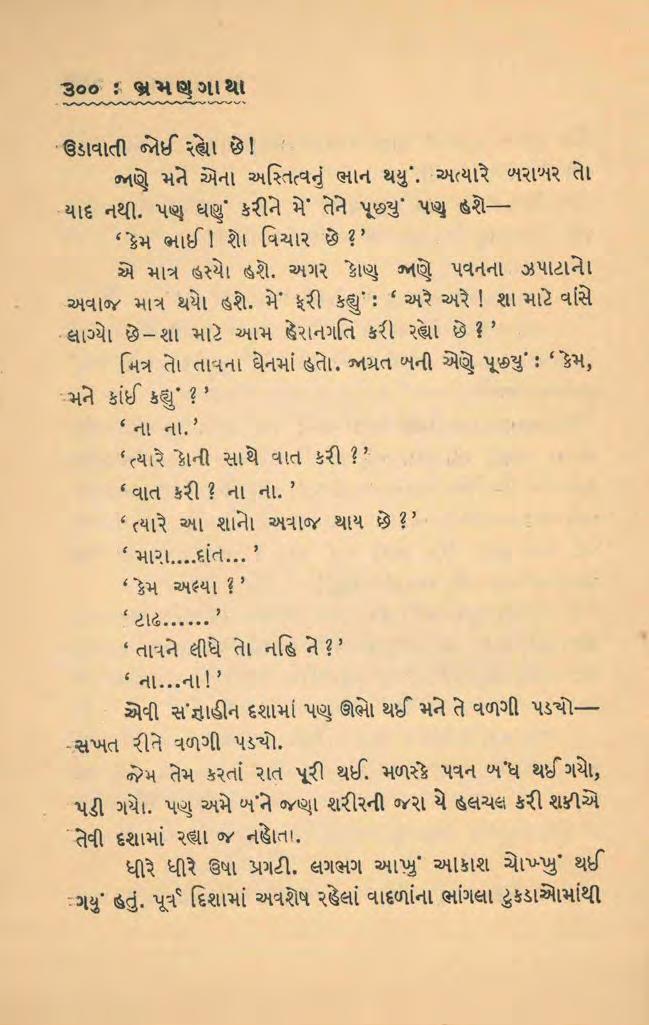 ૩૦૦ : ભ્રમણગાથા
ઉડાવાતી જોઈ રહ્યો છે!
જાણે મને એના અસ્તિત્વનું ભાન થયું. અત્યારે બરાબર તો
યાદ નથી. પણ ઘણું કરીને મેં તેને પૂછયું પણ હશે—
‘કેમ ભાઈ! શો વિચાર છે?’
એ માત્ર હસ્યો હશે. અગર કોણ જાણે પવનના ઝપાટાનો
અવાજ માત્ર થયો હશે. મેં ફરી કહ્યું : ‘અરે અરે! શા માટે વાંસે
લાગ્યો છે–શા માટે આમ હેરાનગતિ કરી રહ્યો છે?’
મિત્ર તો તાવના ઘેનમાં હતો. જાગ્રત બની એણે પૂછયું : ‘કેમ,
મને કાંઈ કહ્યું?’
‘ના ના.’
‘ત્યારે કોની સાથે વાત કરી?’
‘વાત કરી? ના ના.’
‘ત્યારે આ શાનો અવાજ થાય છે?’
‘મારા....દાંત...’
‘કેમ અલ્યા?’
‘ટાઢ......’
‘તાવને લીધે તો નહિ ને?’
‘ના...ના!’
એવી સંજ્ઞાહીન દશામાં પણ ઊભો થઈ મને તે વળગી પડયો—
સખત રીતે વળગી પડયો.
જેમ તેમ કરતાં રાત પૂરી થઈ. મળસ્કે પવન બંધ થઈ ગયો,
પડી ગયો. પણ અમે બંને જણા શરીરની જરા યે હલચલ કરી શકીએ
તેવી દશામાં રહ્યા જ નહોતા.
ધીરે ધીરે ઉષા પ્રગટી. લગભગ આખું આકાશ ચોખ્ખું થઈ
ગયું હતું. પૂર્વ દિશામાં અવશેષ રહેલાં વાદળાંના ભાંગલા ટુકડાઓમાંથી